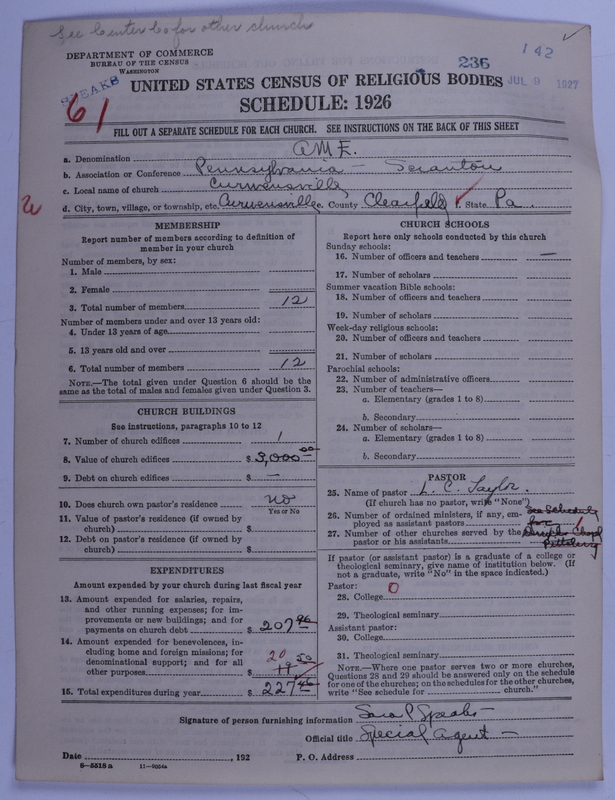 See Center Co for other church
DEPARTMENT OF COMMERCE
BUREAU OF THE CENSUS
WASHINGTON
236
142
SPEAKS
JUL 9 1927
UNITED STATES CENSUS OF RELIGIOUS BODIES
SCHEDULE: 1926
61
FILL OUT A SEPARATE SCHEDULE FOR EACH CHURCH. SEE INSTRUCTIONS ON THE BACK OF THIS SHEET
a. Denomination A.M.E.
b. Association or Conference Pennsylvania - Scranton
c. Local name of church Curwensville
d. City, town, village, or township, etc. Curwensville e. County Clearfield f. State Pa.
MEMBERSHIP
Report number of members according to definition of member in your church
Number of members, by sex:
1. Male
2. Female
3. Total number of members 12
Number of members under and over 13 years old:
4. Under 13 years of age
5. 13 years old and over
6. Total number of members 12
NOTE.—The total given under Question 6 should be the same as the total of males and females given under Question 3.
CHURCH BUILDINGS
See instructions, paragraphs 10 to 12
7. Number of church edifices 1
8. Value of church edifices $ 3,000.00
9. Debt on church edifices $ —
10. Does church own pastor's residence no
Yes or No
11. Value of pastor's residence (if owned by church) $
12. Debt on pastor's residence (if owned by church) $
EXPENDITURES
Amount expended by your church during last fiscal year
13. Amount expended for salaries, repairs, and other running expenses; for improvements or new buildings; and for payments on church debt $ 207.96
14. Amount expended for benevolences, including home and foreign missions; for denominational support; and for all other purposes $ 19.50
20
15. Total expenditures during year $ 227.46
CHURCH SCHOOLS
Report here only schools conducted by this church
Sunday schools:
16. Number of officers and teachers —
17. Number of scholars
Summer vacation Bible schools:
18. Number of officers and teachers
19. Number of scholars
Week-day religious schools:
20. Number of officers and teachers
21. Number of scholars
Parochial schools:
22. Number of administrative officers
23. Number of teachers—
a. Elementary (grades 1 to 8)
b. Secondary
24. Number of scholars—
a. Elementary (grades 1 to 8)
b. Secondary
PASTOR
25. Name of pastor L. C. Taylor.
(If church has no pastor, write "None")
26. Number of ordained ministers, if any, employed as assistant pastors See Schedule for
27. Number of other churches served by the pastor or his assistants 1 Chapel
If pastor (or assistant pastor) is a graduate of a college or theological seminary, give name of institution below. (If not a graduate, write "No" in the space indicated.)
Pastor: 0
28. College
29. Theological seminary
Assistant pastor:
30. College
31. Theological seminary
NOTE.—Where one pastor serves two or more churches, Questions 28 and 29 should be answered only on the schedule for one of the churches; on the schedules for the other churches, write "See schedule for church."
Signature of person furnishing information Sara P Speaks
Official title Special Agent
Date , 192 P. O. Address
8—5518 a 11—9054a